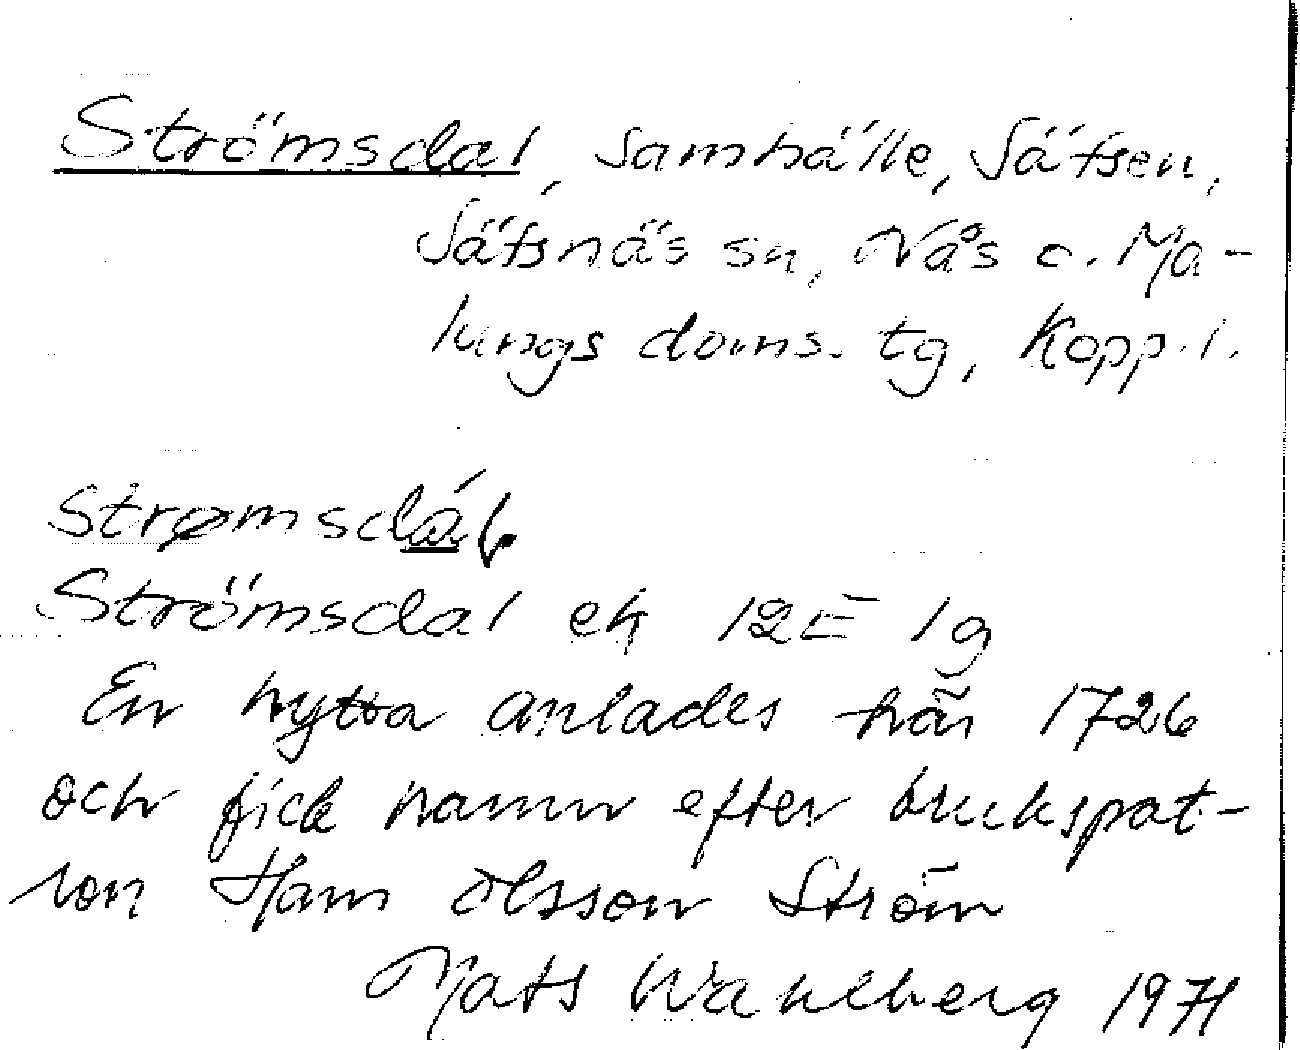 Strömsdal, samhälle, Säfsen,
Säfsnäs sn, Nås o. Ma-
lungs doms. tg, Kopp. l.
Strømsdál
Strömsdal ek 12E 1g
En hytta anlades här 1726
och fick namn efter brukspat-
ron Hans Olsson Ström
Mats Wahlberg 1971